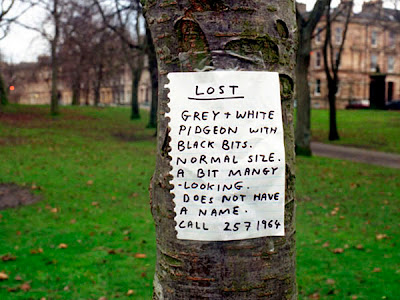 LOST
GREY + WHITE
PIDGEON WITH
BLACK BITS.
NORMAL SIZE.
A BIT MANGY
-LOOKING.
DOES NOT HAVE
A NAME.
CALL 257 1964